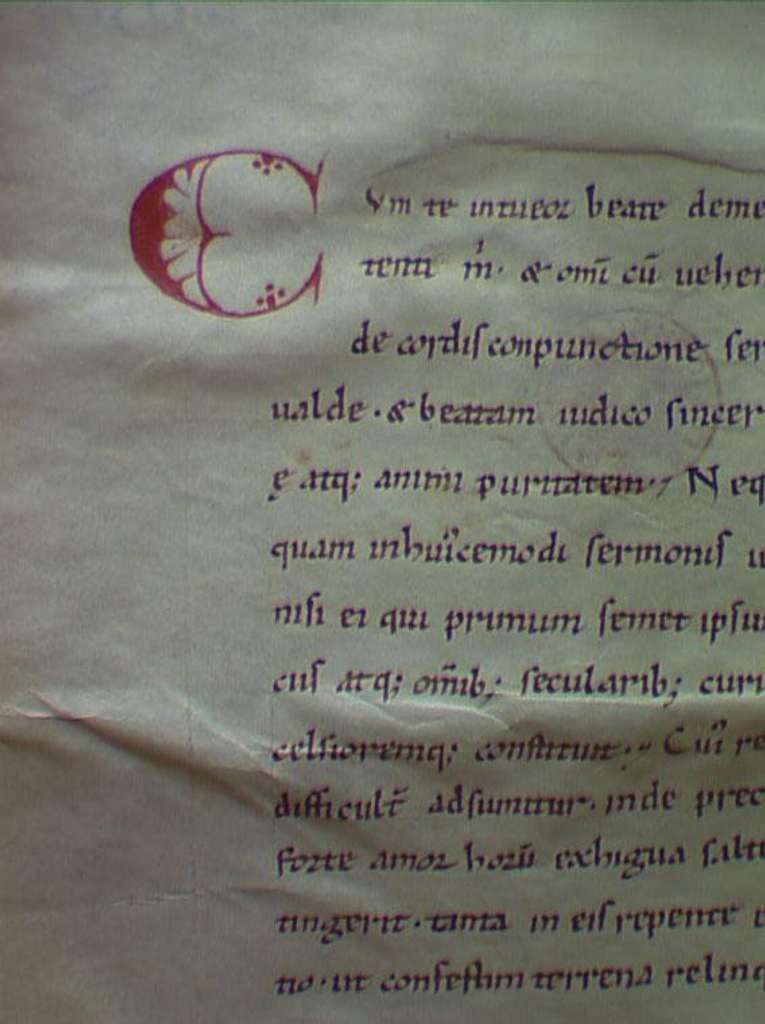 Cum te intueor beate deme
tenti m̅i. & om̅i cū uehem
de cordiſ conpunctione ſer
ualde. & beatam iudico ſincer
ę atq; animi puritatem; Neq
quam in hui'cemodi ſermoniſ u
niſi ei qui primum ſemet ipſu
cuſ atq; om̅ib; ſecularib; curi
celſioremq; conſtituit; Cui' re
difficult̅ adſumitur. inde prec
forte amor horū exhigua ſalt
tingerit. tanta in eiſ repente
tio. ut confeſtim terrena relinq